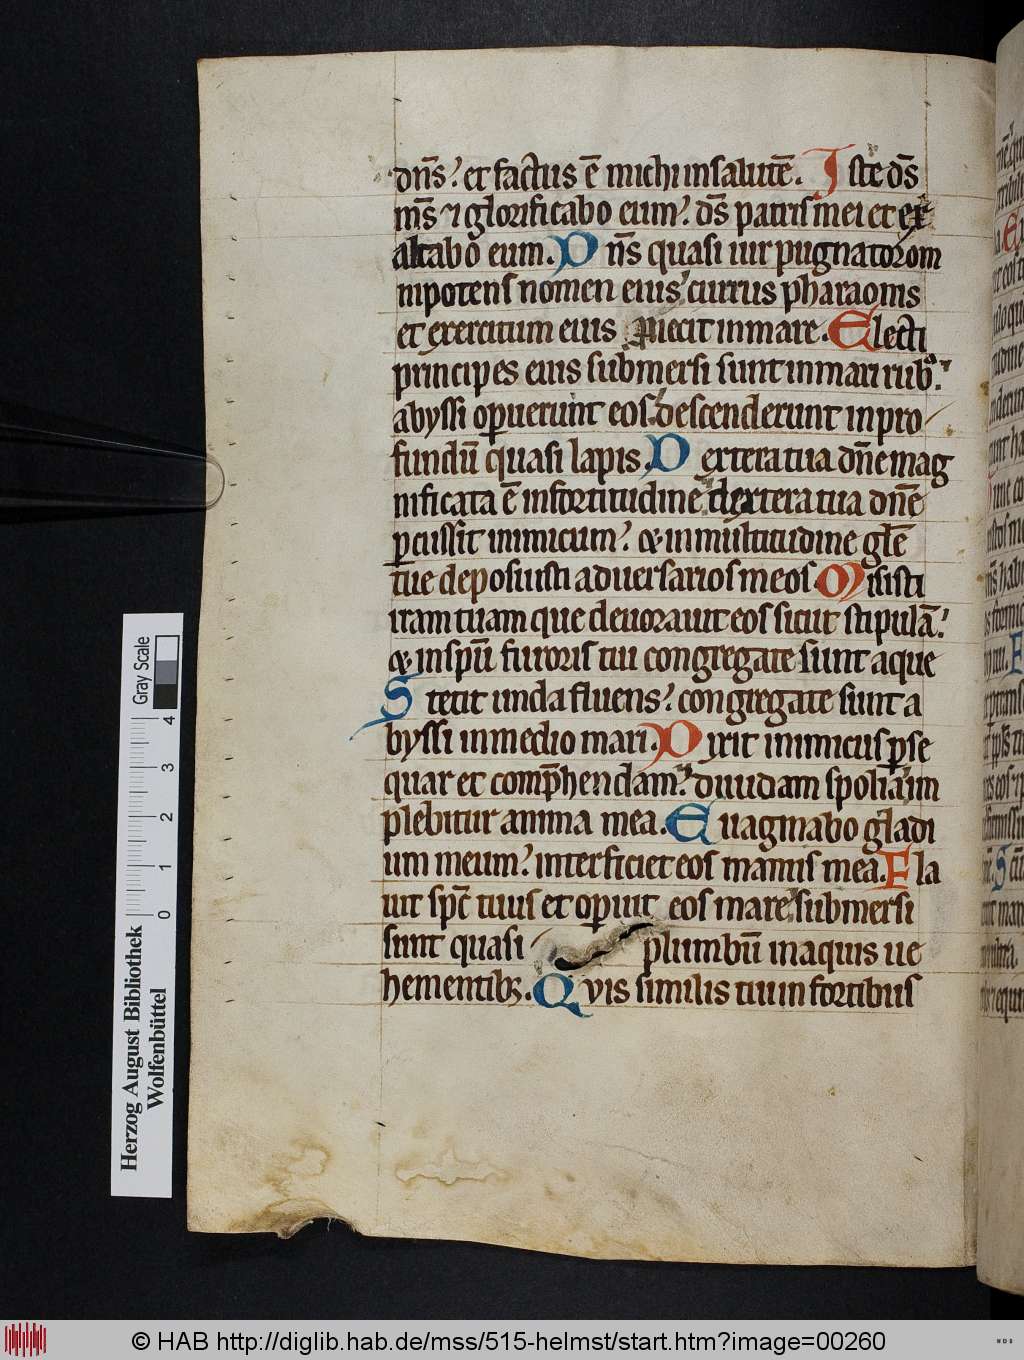 dn̄s. et factus ē michi in salutē. Iste ds̄
ms̄ ⁊ glorificabo eum. ds̄ patris mei et ex
altabo eum. Dn̄s quasi uir pugnator om
nipotens nomen eius currus pharaonis
et exercitum eius proiecit in mare. Electi
principes eius submersi sunt in mari rubº.
abyssi operuerunt eos descenderunt in pro
fundū quasi lapis. Dextera tua dn̄e mag
nificata ē in fortitudine dextera tua dn̄e
ꝑcussit inimicum. & in multitudine gl̄e
tue deposuisti aduersarios meos. Misisti
iram tuam que deuorauit eos sicut stipulā.
& in spū furoris tui congregate sunt aque
Stetit unda fluens. congregate sunt a
byssi in medio mari. Dixit inimicus ꝑse
quar et comp̄hendam. diuidam spolia im
plebitur anima mea. Euaginabo gladi
um meum. interficiet eos manus mea. Fla
uit spc̄ tuus et oꝑuit eos mare submersi
sunt quasi plumbū in aquis ue
hementibꝫ. Qvis similis tui in fortibus
Gray Scale
4
3
2
1
0
Herzog August Bibliothek
Wolfenbüttel
© HAB http://diglib.hab.de/mss/515-helmst/start.htm?image=00260